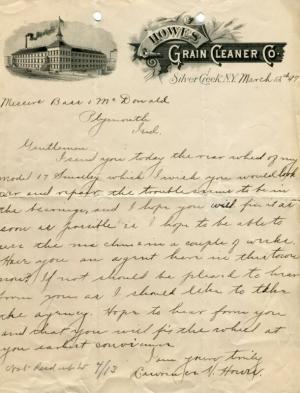 HOWES
GRAIN CLEANER CO.
Silver Creek, N.Y. March 13th 97
Messers Bass & McDonald
Plymouth
Ind.
Gentlemen
I send you today the rear wheel of my
model 17 Smalley which I wish you would look
over and repair the trouble seems to be in
the bearings, and I hope you will fix it as
soon as possible as I hope to be able to
use the machine in a couple of weeks.
Have you an agent here in this town
now? If not should be pleased to hear
form you as I should like to take
the agency. Hope to hear form you
and that you will fix the wheel at
you earliest convience
I am yours truly
Lawrence N. Howes
4/13